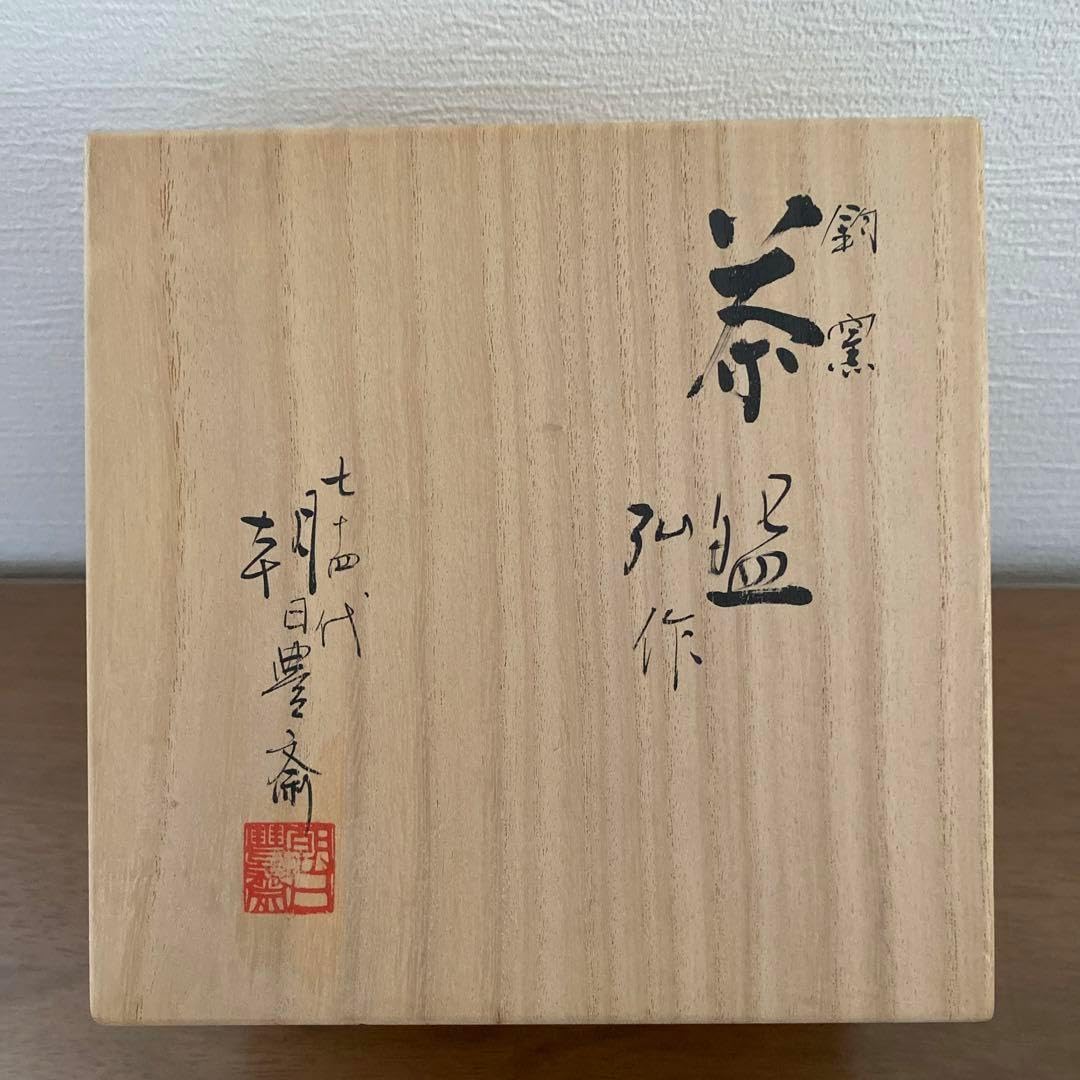 鈞窯
茶盌
弘作
七十四代
朝日豊斎
朝日豊斎